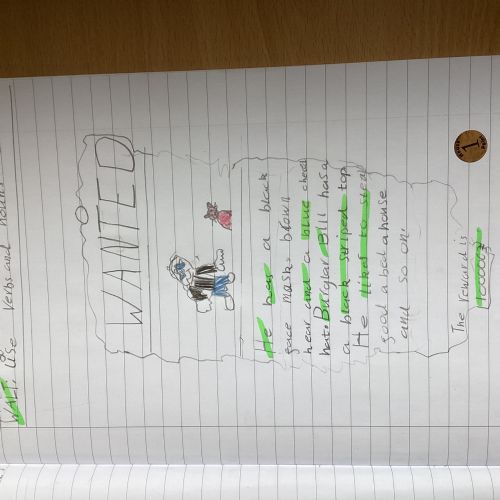 WALT: Use verbs and nouns
WANTED
He has a black
face mask. brown
hear and a blue checd
hat. Burglar Bill has a
a black striped top
He likes to steal
good a bad a house
and so on.
The reward is
1